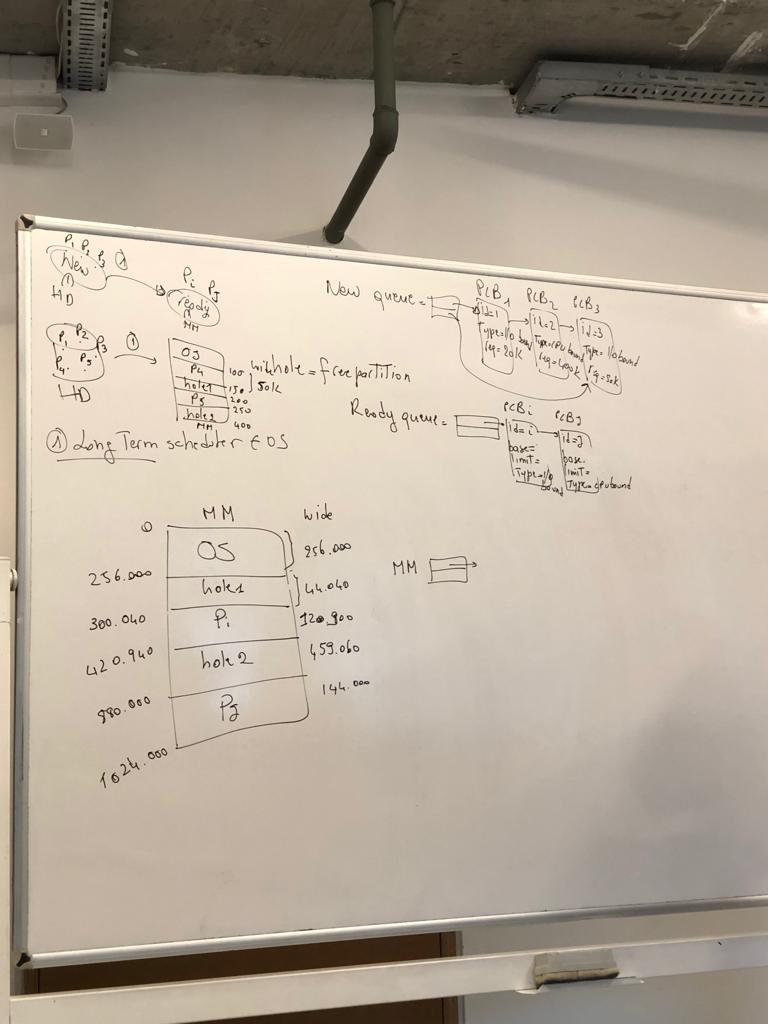 P1 P2 P3
New
①
HD
Pi Pj
ready
MM
P1 P2 P3
P4 P5
HD
①
OS
P4
hole1
P5
hole2
MM
100
150
200
250
400
50k
hole = free partition
① Long Term scheduler ∈ OS
New queue =
PCB1 PCB2 PCB3
id=1
Type=I/O bound
req=20k
id=2
Type=CPU bound
id=3
Type=I/O bound
Ready queue =
PCBi PCBj
id=i
base=
limit=
Type=I/O bound
id=j
base=
limit=
Type=cpubound
MM wide
0
OS 256.000
256.000
hole1 44.040
300.040
Pi 120.900
420.940
hole2 459.060
880.000
Pj 144.000
1024.000
MM